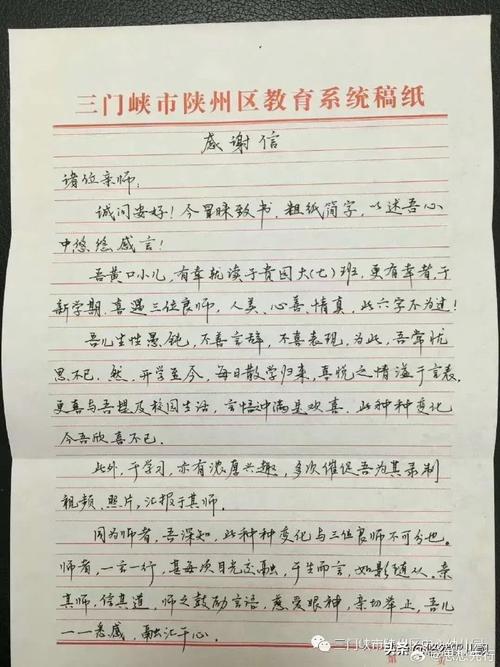 三门峡市陕州区教育系统稿纸
感谢信
诸位亲师:
诚问安好!今冒昧致书,粗纸简字,以述吾心
中悠悠感言!
吾黄口小儿,有幸就读于贵园大(七)班,更有幸者,于
新学期,喜遇三位良师,人美、心善、情真,此六字不为过!
吾儿生性愚钝,不善言辞,不喜表现,为此,吾常忧
思不已,然,开学至今,每日散学归来,喜悦之情溢于言表,
更喜与吾提及校园生活,言语中满是欢喜,此种种变化
令吾欣喜不已。
此外,于学习,亦有浓厚兴趣,多次催促吾为其录制
视频、照片,汇报于其师。
因为师者,吾深知,此种种变化与三位良师不可分也。
师者,一言一行,甚每次目光交融,于生而言,如影随从。亲
其师,信其道,师之鼓励言语,慈爱眼神,亲切举止,吾儿
一一悉感,融汇于心。